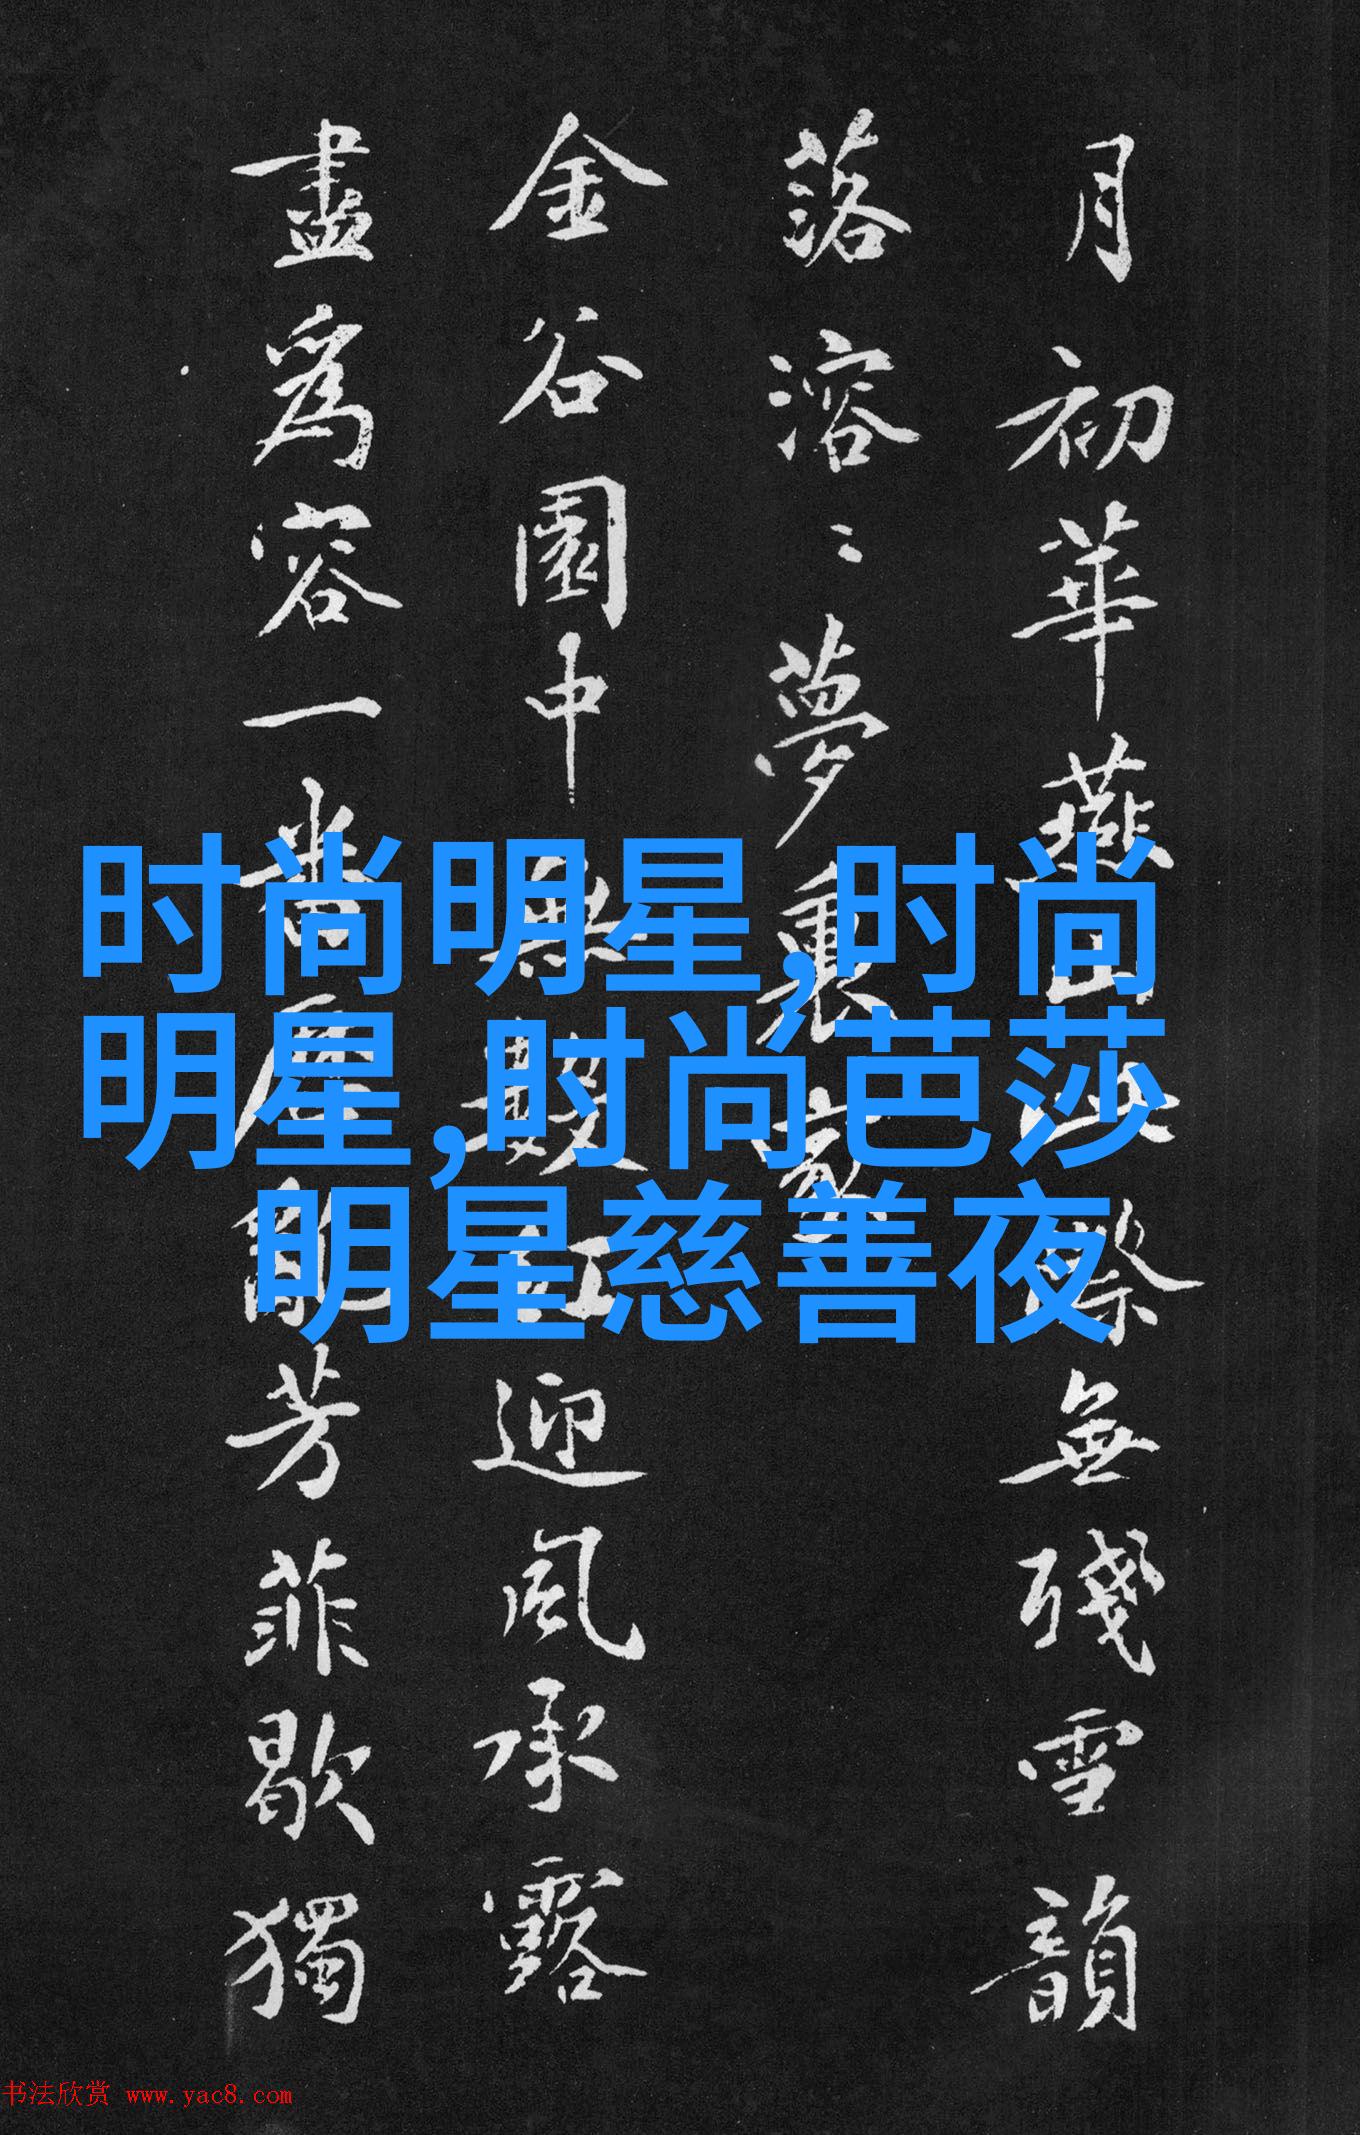 月初華燕山無殘雪韻
落溶〻夢裏
金谷園中無數紅迎風承露
盡為容一番芳菲歇獨
时尚明星,时尚
明星,时尚芭莎
明星慈善夜
书法欣赏 www.yac8.com